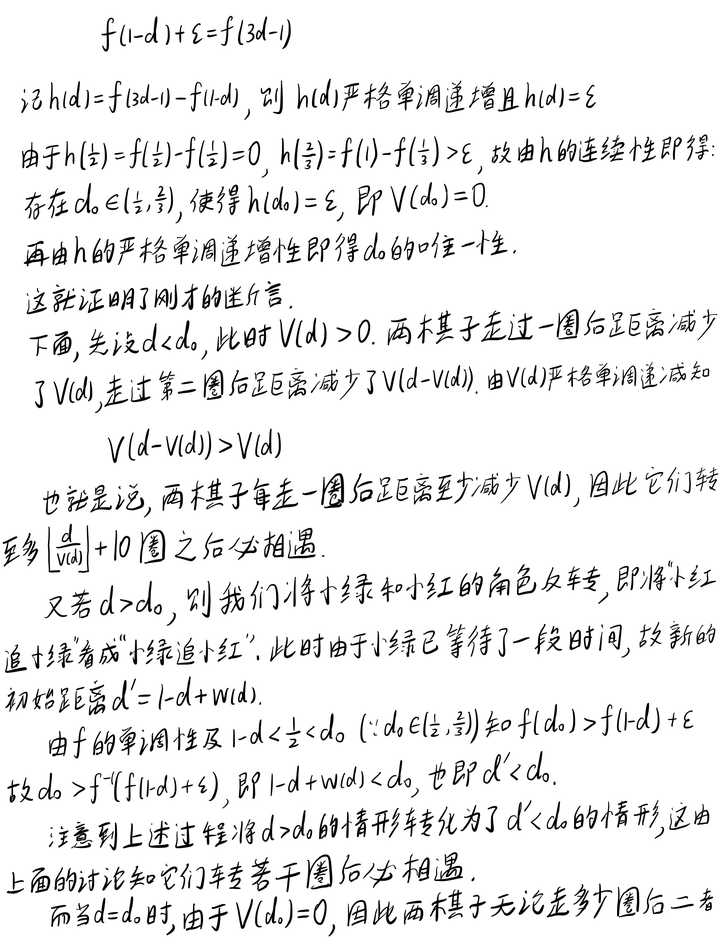 f(1-d)+ε=f(3d-1)
记h(d)=f(3d-1)-f(1-d),则 h(d)严格单调递增且h(d)=ε
由于h(1/2)=f(1/2)-f(1/2)=0, h(2/3)=f(1)-f(1/3)>ε,故由h的连续性即得:
存在d₀∈(1/2,2/3),使得h(d₀)=ε,即V(d₀)=0.
再由h的严格单调递增性即得d₀的唯一性.
这就证明了刚才的断言.
下面,先设d<d₀,此时V(d)>0.两棋子走过一圈后距离减少
了V(d),走过第二圈后距离减少了V(d-V(d)).由V(d)严格单调递减知
V(d-V(d))>V(d)
也就是说,两棋子每走一圈后距离至少减少V(d),因此它们转
至多⌊d/V(d)⌋+10圈之后必相遇.
又若d>d₀,则我们将小绿和小红的角色反转,即将“小红
追小绿”看成“小绿追小红”.此时由于小绿已等待了一段时间,故新的
初始距离d′=1-d+W(d).
由f的单调性及1-d<1/2<d₀ (∵d₀∈(1/2,2/3))知f(d₀)>f(1-d)+ε
故d₀>f⁻¹(f(1-d)+ε),即1-d+W(d)<d₀,也即d′<d₀.
注意到上述过程将d>d₀的情形转化为了d′<d₀的情形,这由
上面的讨论知它们转若干圈后必相遇.
而当d=d₀时,由于V(d₀)=0,因此两棋子无论走多少圈后二者